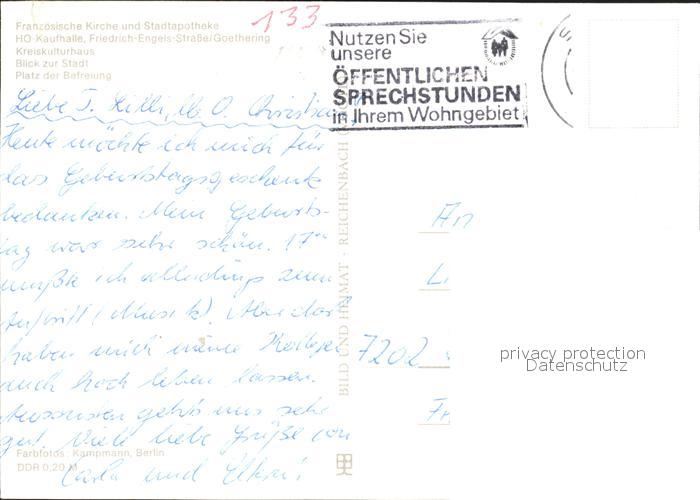 Französische Kirche und Stadtapotheke
HO-Kaufhalle, Friedrich-Engels-Straße/Goethering
Kreiskulturhaus
Blick zur Stadt
Platz der Befreiung
133
Nutzen Sie
unsere
ÖFFENTLICHEN
SPRECHSTUNDEN
in Ihrem Wohngebiet
Liebe T. Lilli, lb O. Christian,
Heute möchte ich mich für
das Geburtstagsgeschenk
bedanken. Mein Geburts-
tag war sehr schön. 17
mußte ich allerdings zum
Auftritt (Musik). Aber dort
haben mich meine Kollegen
auch hoch leben lassen.
Ansonsten geht's uns sehr
gut. Viele liebe Grüße von
Carla und
BILD UND HEIMAT · REICHENBACH
An
7202
privacy protection
Datenschutz
Farbfotos: Kampmann, Berlin
DDR 0,20 M